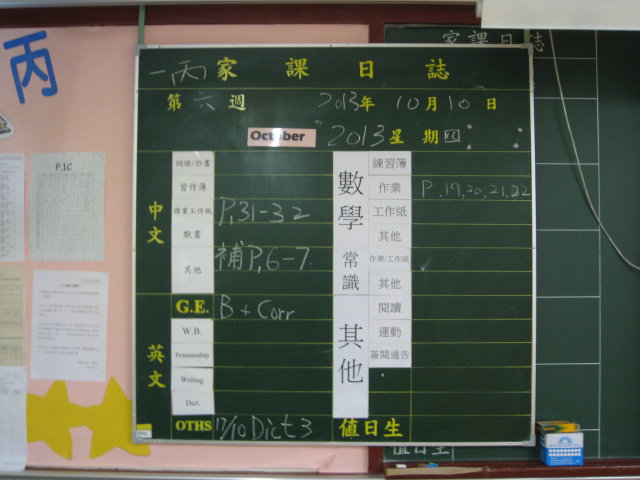 丙
家課日誌
一丙 家課日誌
第六週 2013年 10月10日
October 2013 星期四
P.1C
中文
詞語/抄書
習作簿
課業工作紙 P.31-32
默書
其他 補P.6-7.
英文
G.E. B + Corr
W.B.
Penmanship
Writing
Dict.
OTHS 17/10 Dict 3
數學
練習簿
作業 P.19,20,21,22
工作紙
其他
常識
作業/工作紙
其他
其他
閱讀
運動
簽閱通告
值日生
值日生